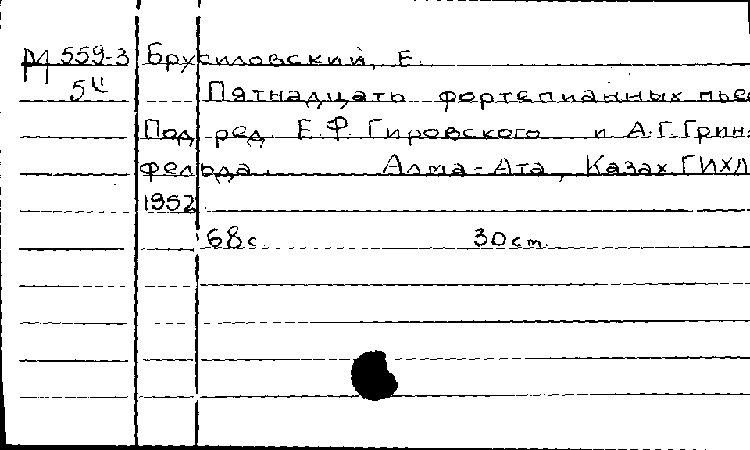 М 559-3 Брусиловский, Е.
5ч Пятнадцать фортепианных пьес
Под ред. Е.Ф. Гировского и А.Г. Грин-
фельда. Алма-Ата, Казах. ГИХЛ
1952.
68 с. 30 см.